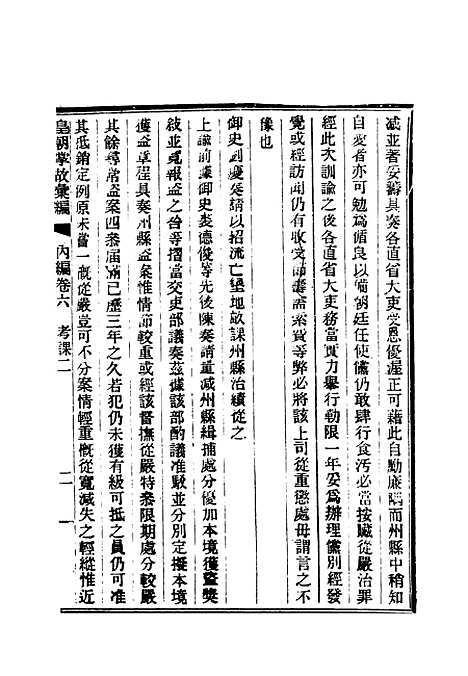 減並著妥籌具奏各直省大吏受恩優渥正可藉此自勤廉隅而州縣中稍知
自愛者亦可勉爲循良以備朝廷任使儻仍敢肆行貪污必當按贓從嚴治罪
經此次訓諭之後各直省大吏務當實力舉行勒限一年妥爲辦理儻別經發
覺或經訪聞仍有收受節壽需索費等弊必將該上司從重懲處毋謂言之不
像也
御史劉慶奏請以招流亡墾地畝課州縣治績從之
上諭前據御史裴德俊等先後陳奏請量減州縣緝捕處分優加本境獲盜獎
敘並寬報盜之咎等摺當交吏部議奏茲據該部酌議准駁並分別定擬本境
獲盜章程具奏州縣盜案惟情節較重或經該督撫從嚴特參限期處分較嚴
其餘尋常盜案四參屆滿已歷三年之久若犯仍未獲有級可抵之員仍可准
其抵銷定例原未嘗一概從嚴豈可不分案情輕重概從寬減失之輕縱惟近
皇朝掌故彙編 內編卷六 考課二 二一